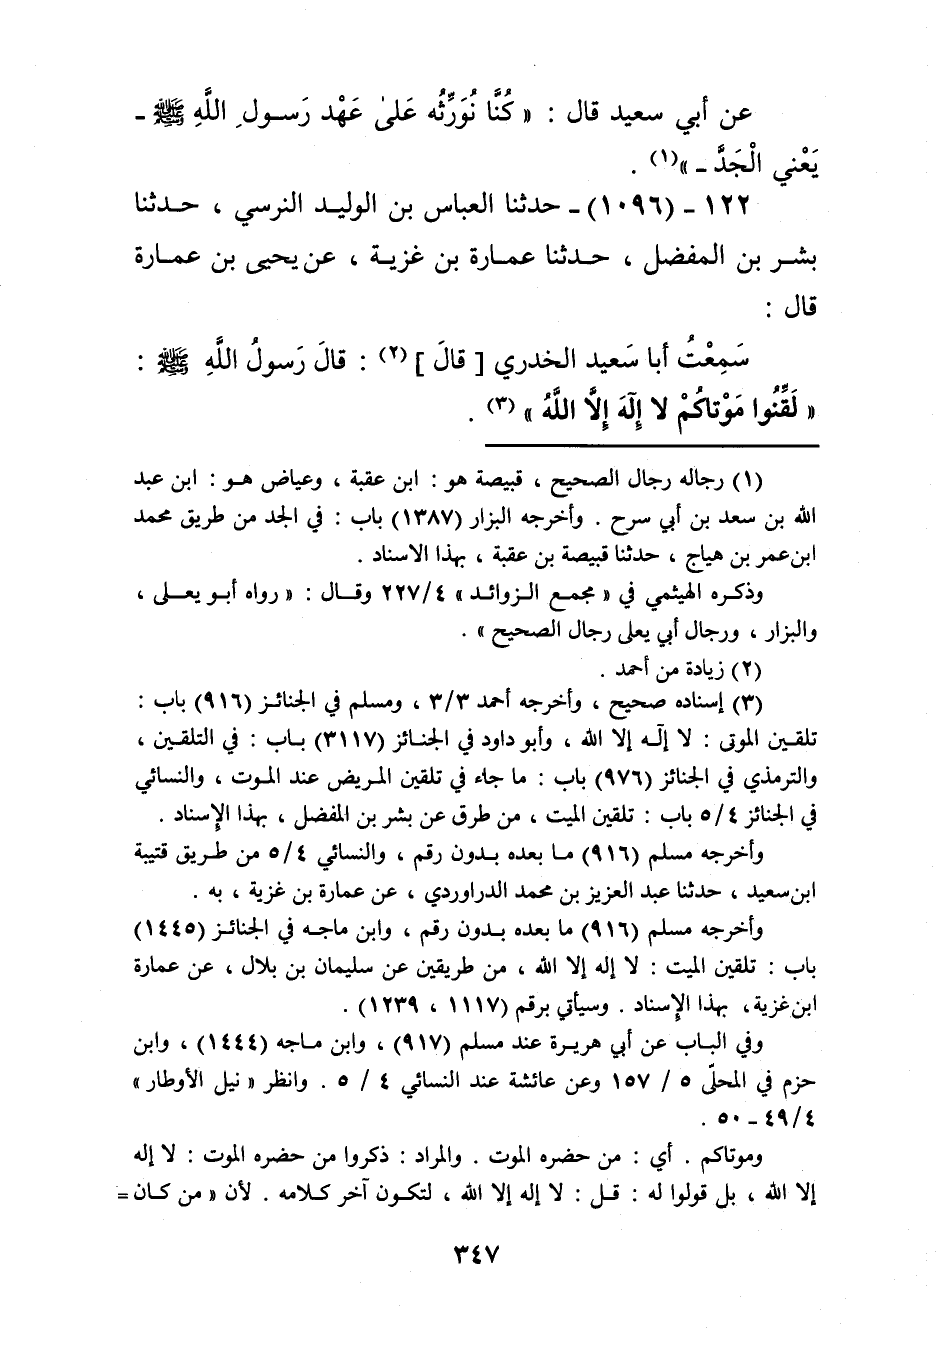 عن أبي سعيد قال : « كُنَّا نُوَرِّثُه عَلىٰ عَهْد رَسول اللَّهِ ﷺ -
يَعْني الْجَدَّ - »(١) .
١٢٢ - (١٠٩٦) - حدثنا العباس بن الوليد النرسي ، حدثنا
بشر بن المفضل ، حدثنا عمارة بن غزية ، عن يحيى بن عمارة
قال :
سَمِعْتُ أبا سَعيد الخدري [ قالَ ](٢) : قالَ رَسولُ اللَّهِ ﷺ :
« لَقِّنُوا مَوْتاكُمْ لا إِلَهَ إِلَّا اللَّهُ »(٣) .
(١) رجاله رجال الصحيح ، قبيصة هو : ابن عقبة ، وعياض هو : ابن عبد
الله بن سعد بن أبي سرح . وأخرجه البزار (١٣٨٧) باب : في الجد من طريق محمد
ابن عمر بن هياج ، حدثنا قبيصة بن عقبة ، بهذا الاسناد .
وذكره الهيثمي في « مجمع الزوائد » ٢٢٧/٤ وقال : « رواه أبو يعلى ،
والبزار ، ورجال أبي يعلى رجال الصحيح » .
(٢) زيادة من أحمد .
(٣) إسناده صحيح ، وأخرجه أحمد ٣/٣ ، ومسلم في الجنائز (٩١٦) باب :
تلقين الموتى : لا إلٰه إلا الله ، وأبو داود في الجنائز (٣١١٧) باب : في التلقين ،
والترمذي في الجنائز (٩٧٦) باب : ما جاء في تلقين المريض عند الموت ، والنسائي
في الجنائز ٥/٤ باب : تلقين الميت ، من طرق عن بشر بن المفضل ، بهذا الإسناد .
وأخرجه مسلم (٩١٦) ما بعده بدون رقم ، والنسائي ٥/٤ من طريق قتيبة
ابن سعيد ، حدثنا عبد العزيز بن محمد الدراوردي ، عن عمارة بن غزية ، به .
وأخرجه مسلم (٩١٦) ما بعده بدون رقم ، وابن ماجه في الجنائز (١٤٤٥)
باب : تلقين الميت : لا إله إلا الله ، من طريقين عن سليمان بن بلال ، عن عمارة
ابن غزية، بهذا الإسناد . وسيأتي برقم (١١١٧ ، ١٢٣٩) .
وفي الباب عن أبي هريرة عند مسلم (٩١٧) ، وابن ماجه (١٤٤٤) ، وابن
حزم في المحلّى ٥ / ١٥٧ وعن عائشة عند النسائي ٤ / ٥ . وانظر « نيل الأوطار »
٤٩/٤ - ٥٠ .
وموتاكم . أي : من حضره الموت . والمراد : ذكروا من حضره الموت : لا إله
إلا الله ، بل قولوا له : قل : لا إله إلا الله ، لتكون آخر كلامه . لأن « من كان =
٣٤٧